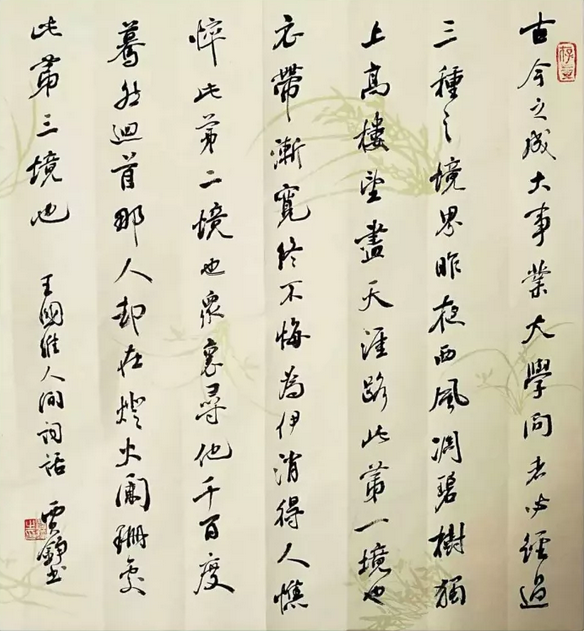 古今之成大事業大學問者必經過
三種之境界昨夜西風凋碧樹獨
上高樓望盡天涯路此第一境也
衣帶漸寬終不悔為伊消得人憔
悴此第二境也衆裏尋他千百度
驀然迴首那人却在燈火闌珊處
此第三境也
王國維人間詞話